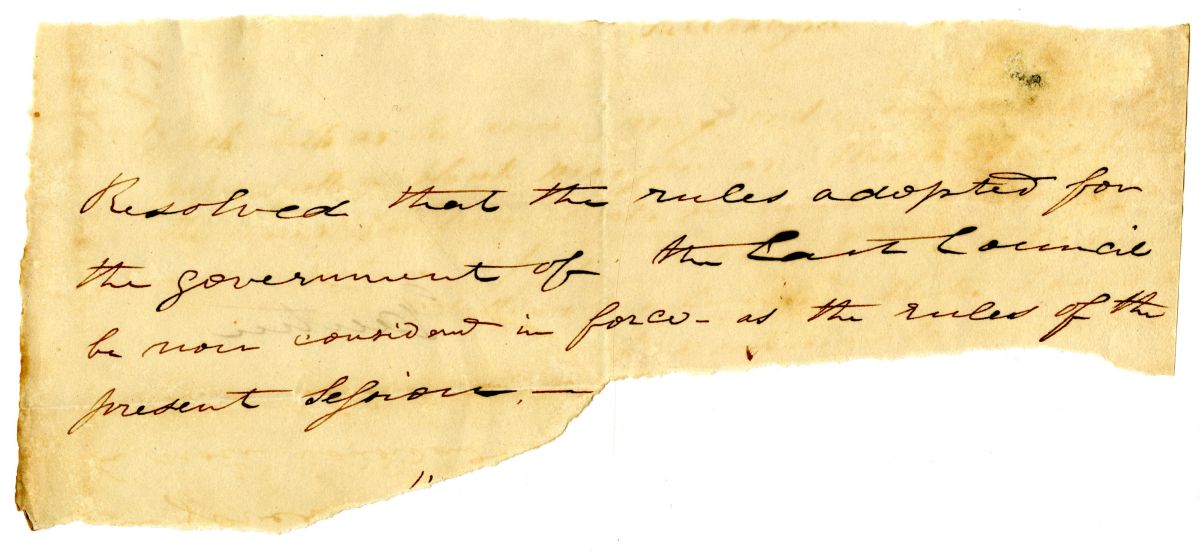 Resolved that the rules adopted for
the government of the Last Council
be now considered in force - as the rules of the
present Session. —